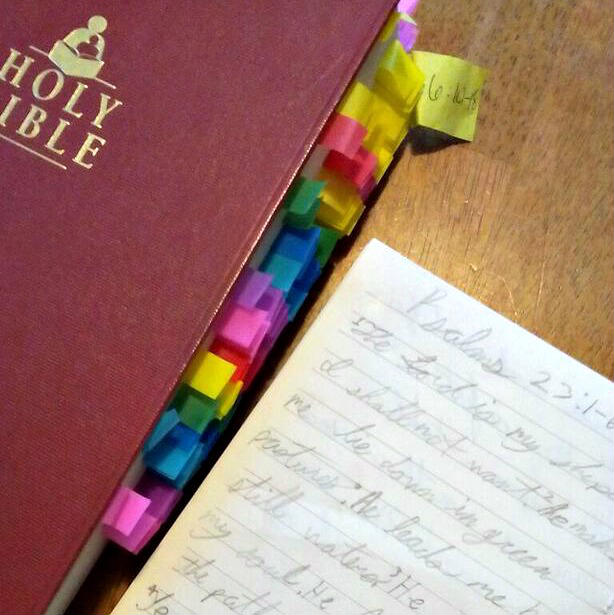 HOLY
BIBLE
Psalms 23:1-6
The Lord is my shep
I shall not want. He ma
me lie down in green
pastures. He leads me
still waters. He
my soul. He
the path